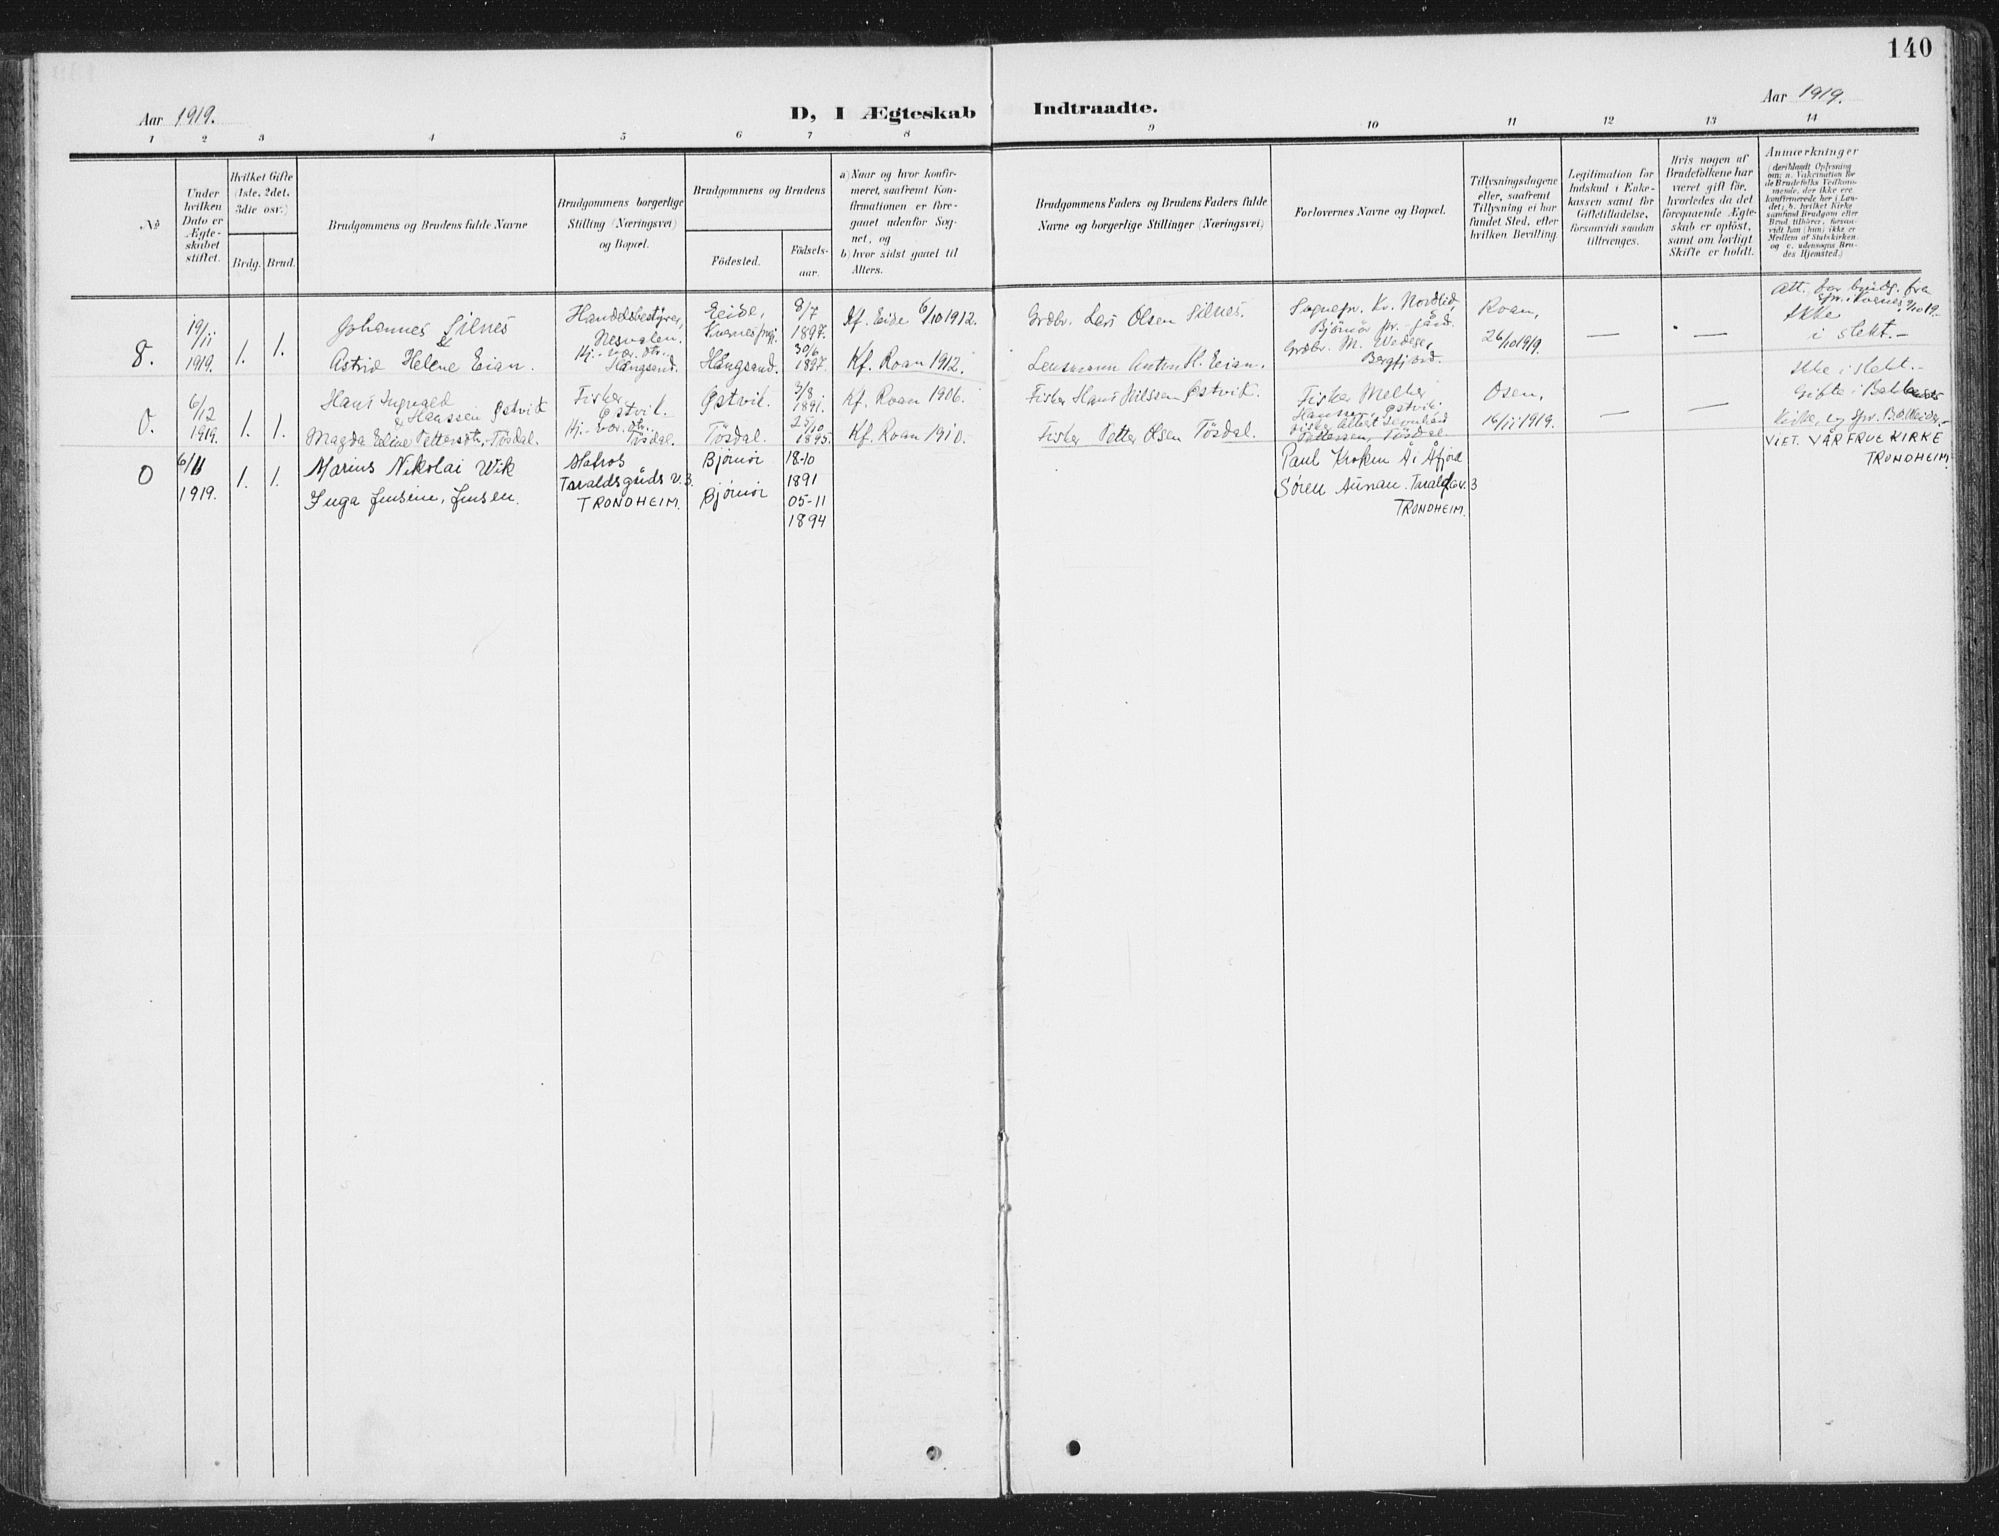 140
Aar 1919.
D, I Ægteskab Indtraadte.
Aar 1919.
1 2 3 4 5 6 7 8 9 10 11 12 13 14
No
Under hvilken Dato er Ægteskabet stiftet.
Hvilket Gifte (1ste, 2det, 3die osv.)
Brdg. Brud.
Brudgommens og Brudens fulde Navne
Brudgommens borgerlige Stilling (Næringsvei) og Bopæl.
Brudgommens og Brudens
Födested.
Födselsaar.
a) Naar og hvor konfirmeret, saafremt Konfirmationen er foregaaet udenfor Sognet, og
b) hvor sidst gaaet til Alters.
Brudgommens Faders og Brudens Faders fulde Navne og borgerlige Stillinger (Næringsvei)
Forlovernes Navne og Bopæl.
Tillysningsdagene eller, saafremt Tillysning ei har fundet Sted, efter hvilken Bevilling.
Legitimation for Indskud i Enkekassen samt for Giftetilladelse, forsaavidt saadan tiltrænges.
Hvis nogen af Brudefolkene har været gift för, hvorledes da det foregaaende Ægteskab er oplöst, samt om lovligt Skifte er holdt.
Anmærkninger
(deriblandt Oplysning om: a. Vakcination for de Brudefolks Vedkommende, der ikke ere konfirmerede her i Landet; b. hvilket Kirkesamfund Brudgom eller Brud tilhörer, forsaavidt han (hun) ikke er Medlem af Statskirken, og c. udensogns Brudes Hjemsted.)
8.
19/11 1919.
1. 1.
Johannes Silnes
&
Astrid Helene Eian.
Handelsbestyrer,
Nesvalen.
Hj.-vær. dtr.
Hångsand.
Eide,
Kvernes prgj.
Hångsand.
8/7
1897.
30/6
1897.
Kf. Eide 6/10 1912.
Kf. Roan 1912.
Grdbr. Lars Olsen Silnes.
Lensmann Anton H. Eian.
Sognepr. Kr. Nordlid,
Bjørnør pr. gård.
Grdbr. M. Wedege,
Bergfjord.
Roan,
26/10 1919.
—
—
Att. for bynds. fra
spr. i Kvernes 9/10 19.
Ikke
i slekt.—
0.
6/12
1919.
1. 1.
Hans Ingvald
& Hanssen Østvik
Magda Eline Pettersdtr. Tösdal.
Fisker
Østvik.
Hj.-vær. dtr.
Tösdal.
Østvik.
Tösdal.
3/8
1891.
25/10
1895.
Kf. Roan 1906.
Kf. Roan 1910.
Fisker Hans Nilssen Østvik.
Fisker Petter Olsen Tösdal.
Fisker Melker
Hansen, Østvik.
Fisker Albert Leonhard
Pettersen, Tösdal.
Osen,
16/11 1919.
—
—
Ikke i slekt.—
Gifte i
Kirke, og spr.
0
6/11
1919.
1. 1.
Marius Nikolai Wik
Inga Jensine, Jensen.
Matros
Taraldsgårds v. 3
TRONDHEIM.
Bjørnør
Bjørnør
18-10
1891
05-11
1894
Paul Kroken Å i Åfjord
Søren Aunan. Taraldsgv. 3
TRONDHEIM.
VIET. VÅR FRUE KIRKE
TRONDHEIM.